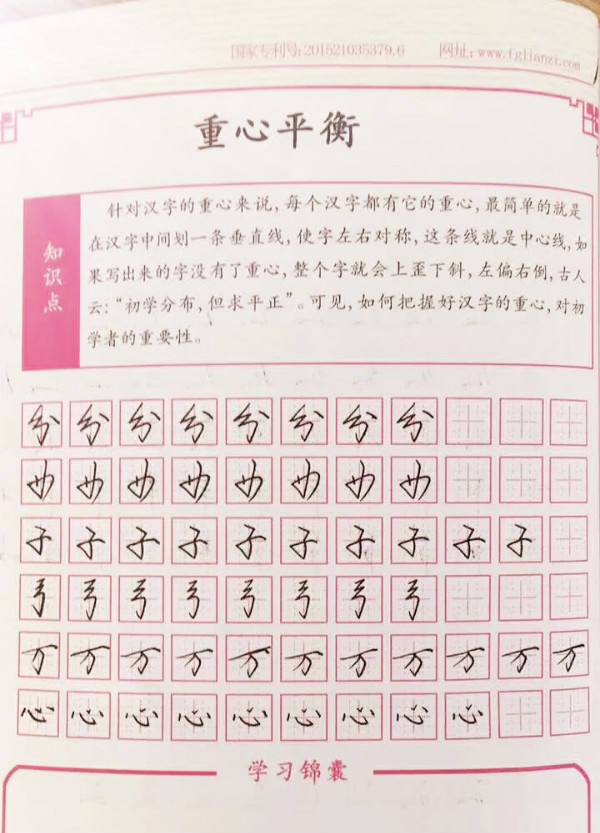 国家专利号:201521035379.6 网址:www.fglianzi.com
重心平衡
知识点
针对汉字的重心来说,每个汉字都有它的重心,最简单的就是
在汉字中间划一条垂直线,使字左右对称,这条线就是中心线,如
果写出来的字没有了重心,整个字就会上歪下斜,左偏右倒,古人
云:“初学分布,但求平正”。可见,如何把握好汉字的重心,对初
学者的重要性。
分 分 分 分 分 分 分 分
子 子 子 子 子 子 子 子 子 子
弓 弓 弓 弓 弓 弓 弓 弓
万 万 万 万 万 万 万 万 万 万 万
心 心 心 心 心 心 心 心 心
学习锦囊